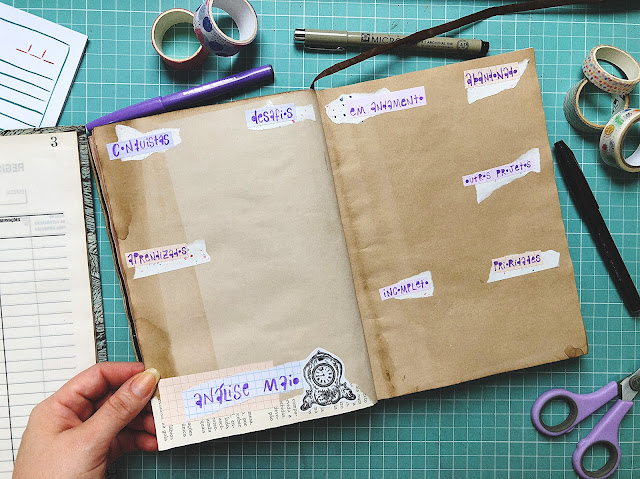 3
REGIS
conquistas
desafios
aprendizados
análise maio
em andamento
abandonado
outros projetos
incompleto
prioridades
MICRON